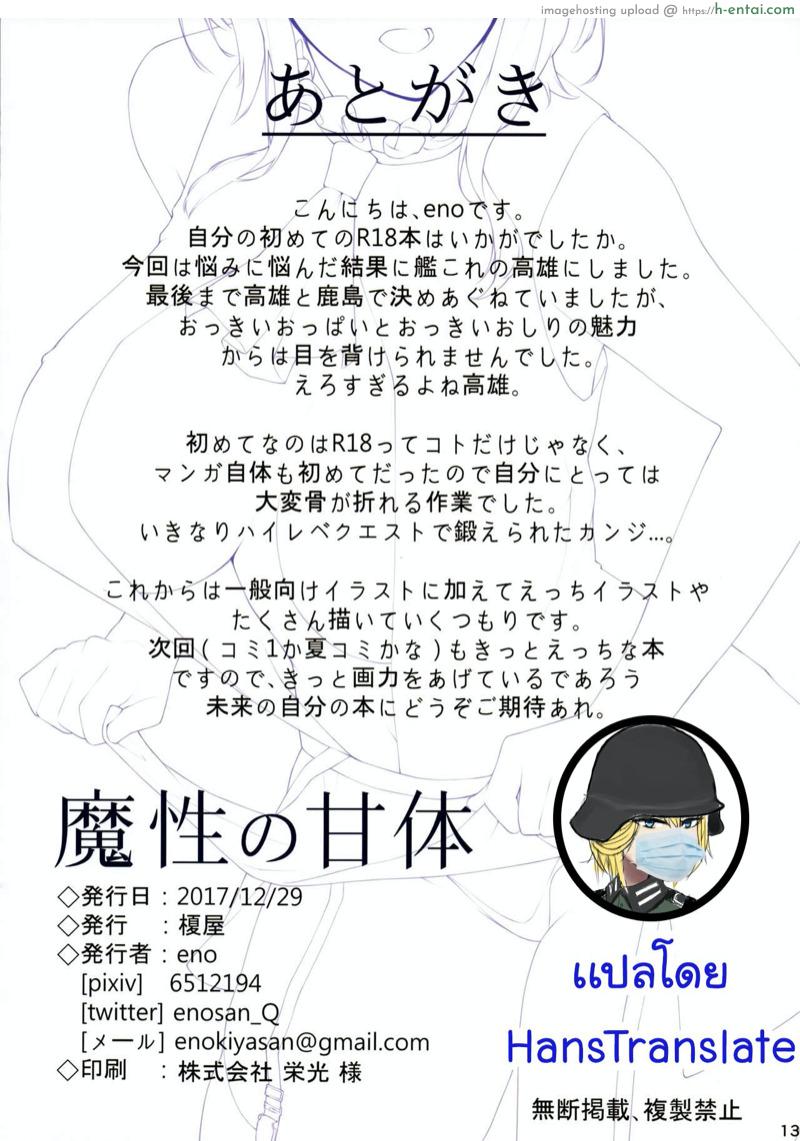 imagehosting upload @ https://h-entai.com
あとがき
こんにちは、enoです。
自分の初めてのR18本はいかがでしたか。
今回は悩みに悩んだ結果に艦これの高雄にしました。
最後まで高雄と鹿島で決めあぐねていましたが、
おっきいおっぱいとおっきいおしりの魅力
からは目を背けられませんでした。
えろすぎるよね高雄。
初めてなのはR18ってコトだけじゃなく、
マンガ自体も初めてだったので自分にとっては
大変骨が折れる作業でした。
いきなりハイレベクエストで鍛えられたカンジ...。
これからは一般向けイラストに加えてえっちイラストや
たくさん描いていくつもりです。
次回(コミ1か夏コミかな)もきっとえっちな本
ですので、きっと画力をあげているであろう
未来の自分の本にどうぞご期待あれ。
魔性の甘体
◇発行日：2017/12/29
◇発行　：榎屋
◇発行者：eno
[pixiv] 6512194
[twitter] enosan_Q
[メール] enokiyasan@gmail.com
◇印刷　：株式会社 栄光 様
แปลโดย
HansTranslate
無断掲載、複製禁止
13